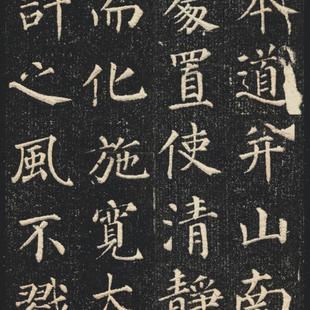 本道并山南
處置使清靜
而化施寬大
計之風不戮